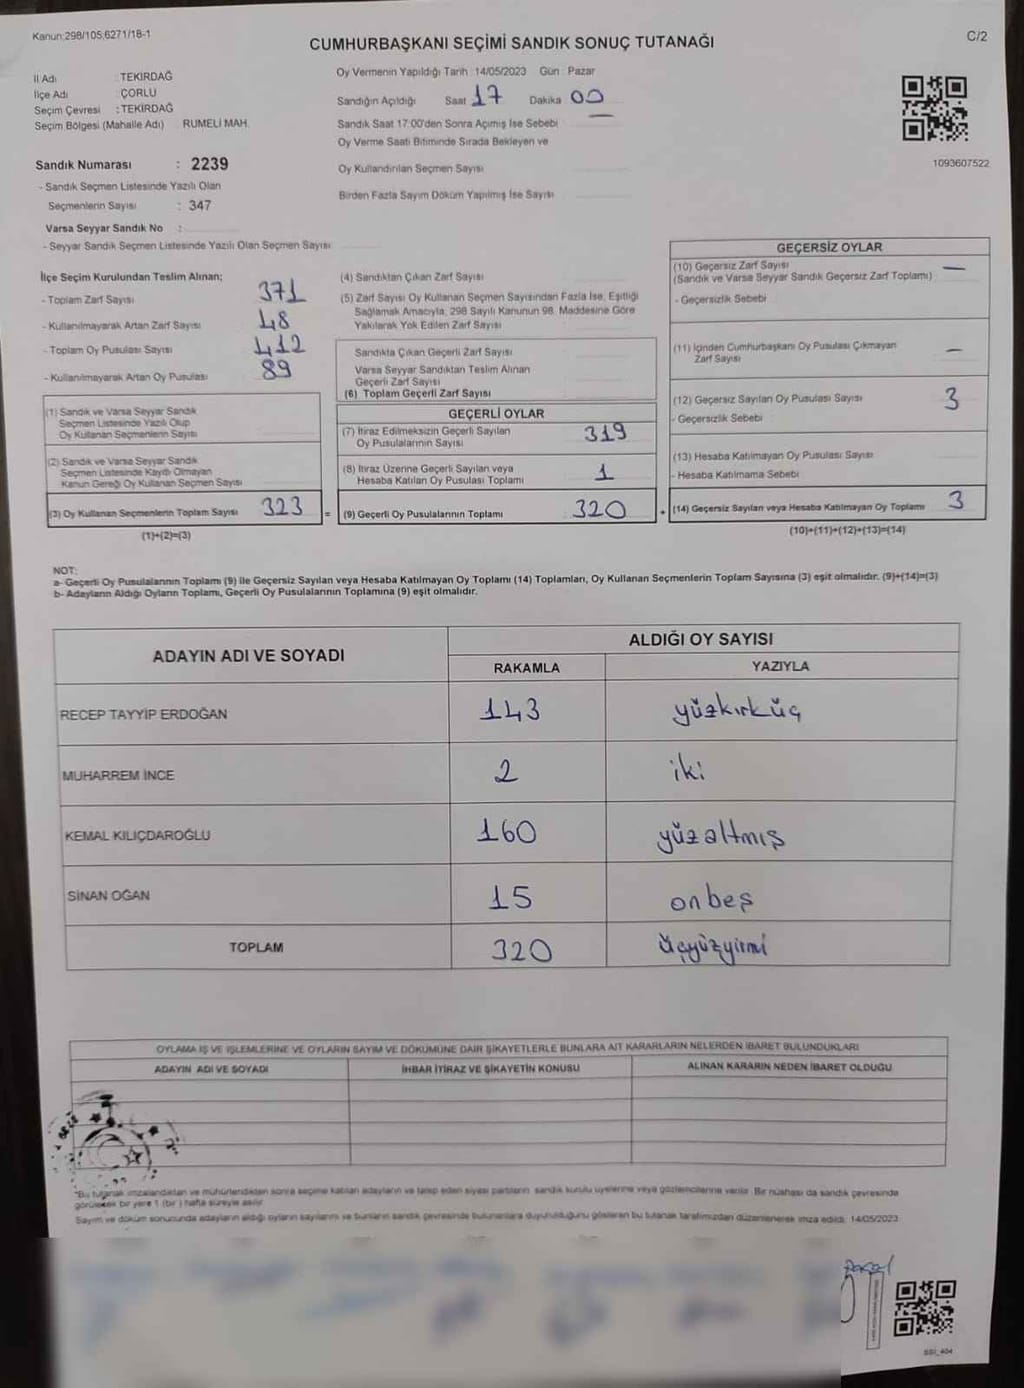 Kanun:298/105,6271/18-1
C/2
CUMHURBAŞKANI SEÇİMİ SANDIK SONUÇ TUTANAĞI
İl Adı : TEKİRDAĞ
İlçe Adı : ÇORLU
Seçim Çevresi : TEKİRDAĞ
Seçim Bölgesi (Mahalle Adı) RUMELİ MAH.
Oy Vermenin Yapıldığı Tarih : 14/05/2023 Gün : Pazar
Sandığın Açıldığı Saat 17 Dakika 00
Sandık Saat 17:00'den Sonra Açımış İse Sebebi
Oy Verme Saati Bitiminde Sırada Bekleyen ve
Oy Kullandırılan Seçmen Sayısı
Birden Fazla Sayım Döküm Yapılmış İse Sayısı
1093607522
Sandık Numarası : 2239
- Sandık Seçmen Listesinde Yazılı Olan
Seçmenlerin Sayısı : 347
Varsa Seyyar Sandık No :
- Seyyar Sandık Seçmen Listesinde Yazılı Olan Seçmen Sayısı
İlçe Seçim Kurulundan Teslim Alınan;
- Toplam Zarf Sayısı 371
- Kullanılmayarak Artan Zarf Sayısı 48
- Toplam Oy Pusulası Sayısı 412
- Kullanılmayarak Artan Oy Pusulası 89
(1) Sandık ve Varsa Seyyar Sandık
Seçmen Listesinde Yazılı Olup
Oy Kullanan Seçmenlerin Sayısı
(2) Sandık ve Varsa Seyyar Sandık
Seçmen Listesinde Kaydı Olmayan
Kanun Gereği Oy Kullanan Seçmen Sayısı
(3) Oy Kullanan Seçmenlerin Toplam Sayısı 323 =
(1)+(2)=(3)
(4) Sandıktan Çıkan Zarf Sayısı
(5) Zarf Sayısı Oy Kullanan Seçmen Sayısından Fazla İse, Eşitliği
Sağlamak Amacıyla, 298 Sayılı Kanunun 98. Maddesine Göre
Yakılarak Yok Edilen Zarf Sayısı
Sandıkta Çıkan Geçerli Zarf Sayısı
Varsa Seyyar Sandıktan Teslim Alınan
Geçerli Zarf Sayısı
(6) Toplam Geçerli Zarf Sayısı
GEÇERLİ OYLAR
(7) İtiraz Edilmeksizin Geçerli Sayılan
Oy Pusulalarının Sayısı 319
(8) İtiraz Üzerine Geçerli Sayılan veya
Hesaba Katılan Oy Pusulası Toplamı 1
(9) Geçerli Oy Pusulalarının Toplamı 320 +
GEÇERSİZ OYLAR
(10) Geçersiz Zarf Sayısı —
(Sandık ve Varsa Seyyar Sandık Geçersiz Zarf Toplamı)
- Geçersizlik Sebebi
(11) İçinden Cumhurbaşkanı Oy Pusulası Çıkmayan
Zarf Sayısı —
(12) Geçersiz Sayılan Oy Pusulası Sayısı 3
- Geçersizlik Sebebi
(13) Hesaba Katılmayan Oy Pusulası Sayısı
- Hesaba Katılmama Sebebi
(14) Geçersiz Sayılan veya Hesaba Katılmayan Oy Toplamı 3
(10)+(11)+(12)+(13)=(14)
NOT:
a- Geçerli Oy Pusulalarının Toplamı (9) ile Geçersiz Sayılan veya Hesaba Katılmayan Oy Toplamı (14) Toplamları, Oy Kullanan Seçmenlerin Toplam Sayısına (3) eşit olmalıdır. (9)+(14)=(3)
b- Adayların Aldığı Oyların Toplamı, Geçerli Oy Pusulalarının Toplamına (9) eşit olmalıdır.
ADAYIN ADI VE SOYADI
ALDIĞI OY SAYISI
RAKAMLA YAZIYLA
RECEP TAYYİP ERDOĞAN 143 yüzkırküç
MUHARREM İNCE 2 iki
KEMAL KILIÇDAROĞLU 160 yüzaltmış
SİNAN OĞAN 15 onbeş
TOPLAM 320 üçyüzyirmi
OYLAMA İŞ VE İŞLEMLERİNE VE OYLARIN SAYIM VE DÖKÜMÜNE DAİR ŞİKAYETLERLE BUNLARA AİT KARARLARIN NELERDEN İBARET BULUNDUKLARI
ADAYIN ADI VE SOYADI İHBAR İTİRAZ VE ŞİKAYETİN KONUSU ALINAN KARARIN NEDEN İBARET OLDUĞU
*Bu tutanak imzalandıktan ve mühürlendikten sonra seçime katılan adayların ve talep eden siyasi partilerin sandık kurulu üyelerine veya gözlemcilerine verilir. Bir nüshası da sandık çevresinde
görülecek bir yere 1 (bir) hafta süreyle asılır.
Sayım ve döküm sonununda adayların aldığı oyların sayılarını ve bunların sandık çevresinde bulunanlara duyurulduğunu gösteren bu tutanak tarafımızdan düzenlenerek imza edildi. 14/05/2023